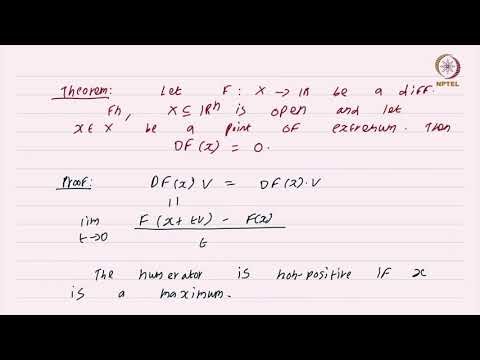 NPTEL
Theorem: Let F : X → IR be a diff.
Fn, X ⊆ IRn is open and let
x ∈ X be a point of extremum. Then
DF(x) = 0.
Proof: DF(x)V = DF(x).V
lim F(x+tV) - F(x)
t→0 t
The numerator is non-positive if x
is a maximum.